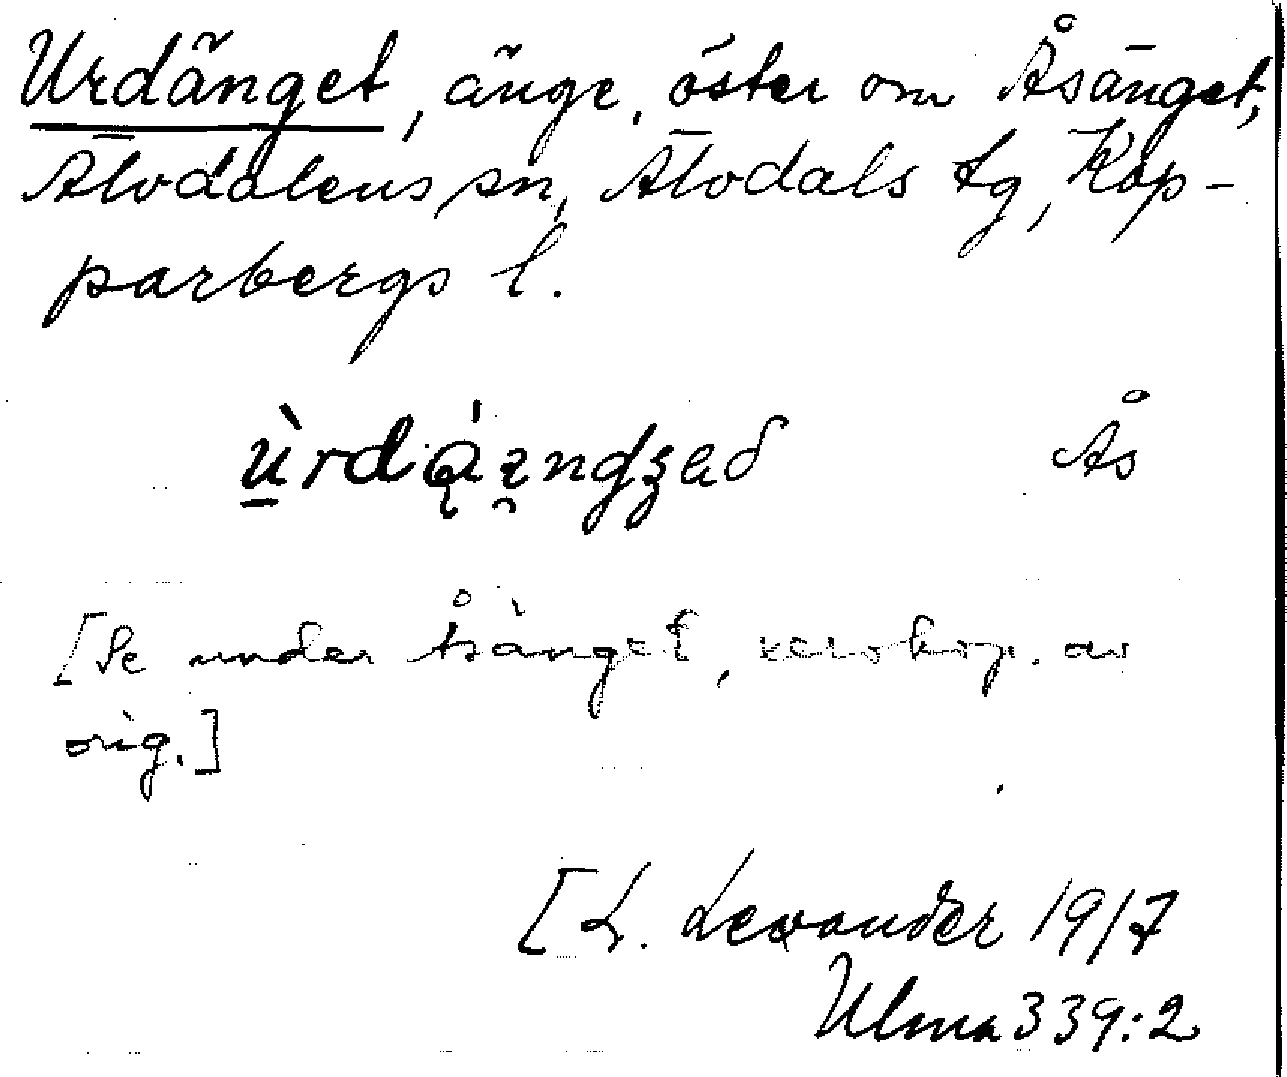 Urdänget, änge, öster om Åsänget,
Älvdalens sn, Älvdals tg, Kop-
parbergs l.
Ås
[Se under Åsänget, xerokop. av
orig.]
[L. Levander 1917
Ulma 339:2